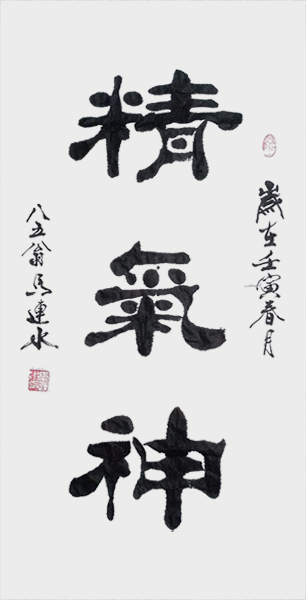 歲在壬寅春月
精氣神
八五翁馬連水